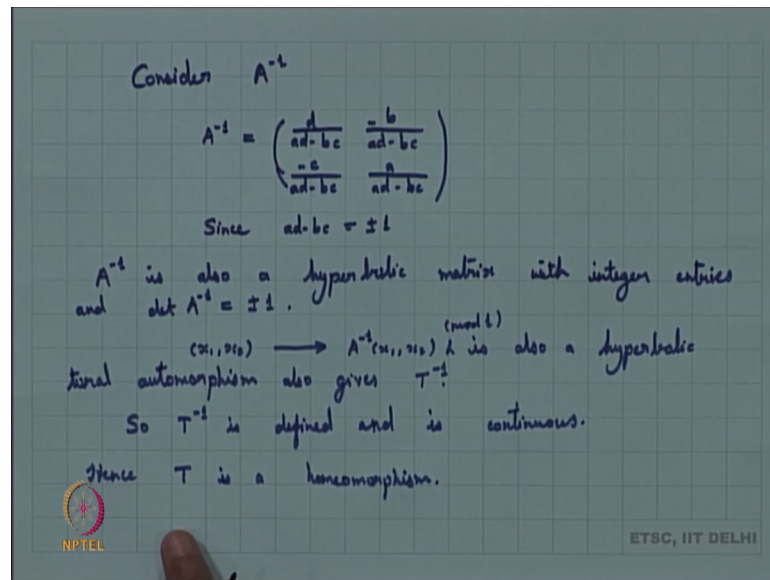 Consider A⁻¹
A⁻¹ = ( d/ad-bc  -b/ad-bc
-c/ad-bc  a/ad-bc )
Since ad-bc = ±1
A⁻¹ is also a hyperbolic matrix with integer entries
and det A⁻¹ = ±1.
(x₁, x₂) ⟶ A⁻¹(x₁, x₂) (mod 1) is also a hyperbolic
toral automorphism also gives T⁻¹.
So T⁻¹ is defined and is continuous.
Hence T is a homeomorphism.
NPTEL
ETSC, IIT DELHI